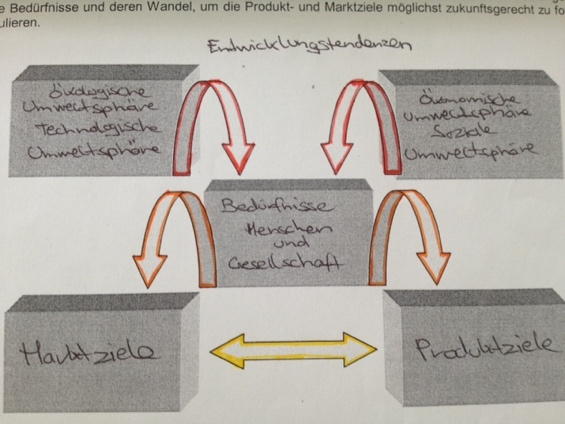 e Bedürfnisse und deren Wandel, um die Produkt- und Marktziele möglichst zukunftsgerecht zu fo
ulieren.
Entwicklungstendenzen
ökologische
Umweltsphäre
Technologische
Umweltsphäre
Ökonomische
Umweltsphäre
Soziale
Umweltsphäre
Bedürfnisse
Menschen
und
Gesellschaft
Marktziele
Produktziele